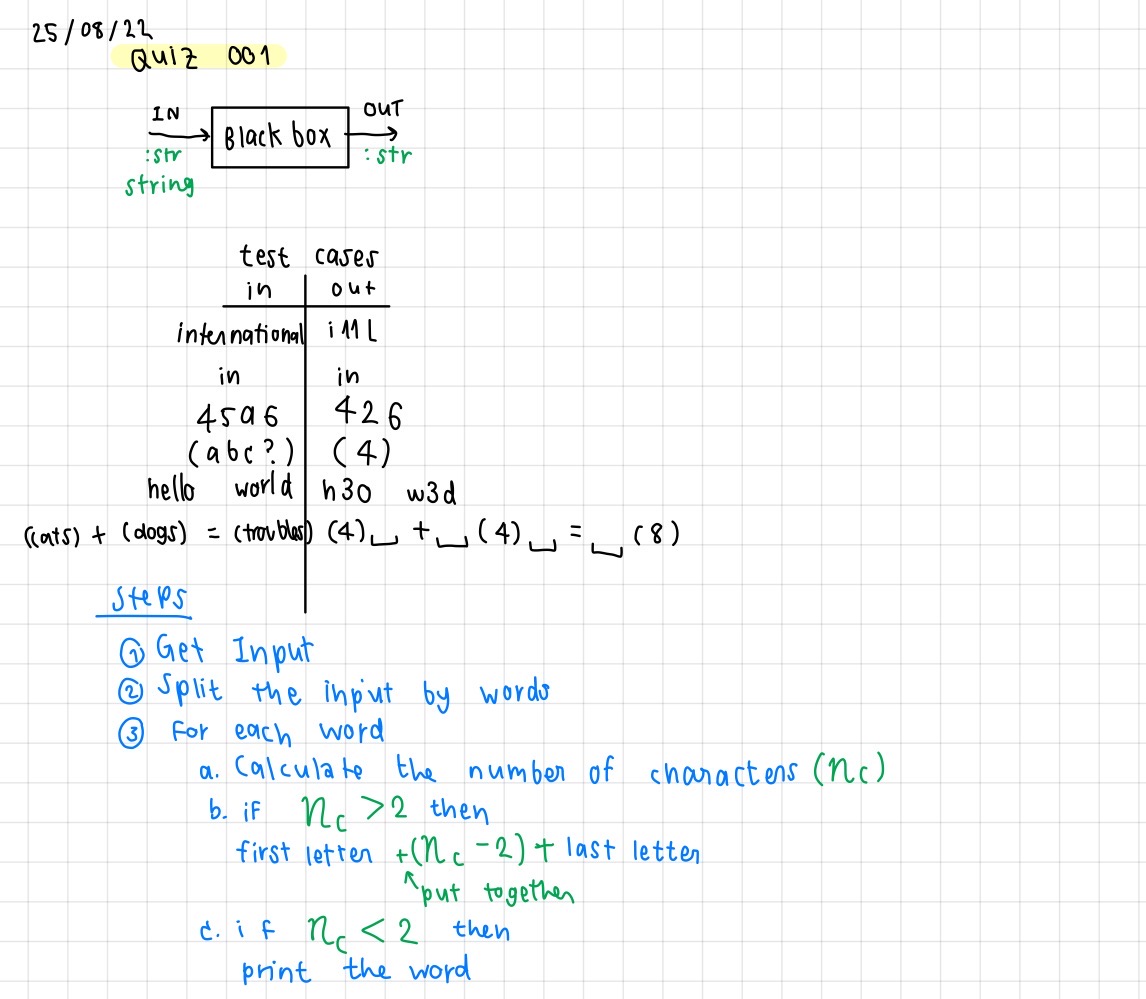 25/08/22
Quiz 001
IN Black box OUT
:str :str
string
test cases
in out
international i11l
in in
45a6 426
(abc?) (4)
hello world h3o w3d
(cats) + (dogs) = (troubles) (4)␣+␣(4)␣=␣(8)
Steps
① Get Input
② Split the input by words
③ For each word
a. Calculate the number of characters (nc)
b. if nc >2 then
first letter +(nc -2) + last letter
↑put together
c. if nc < 2 then
print the word